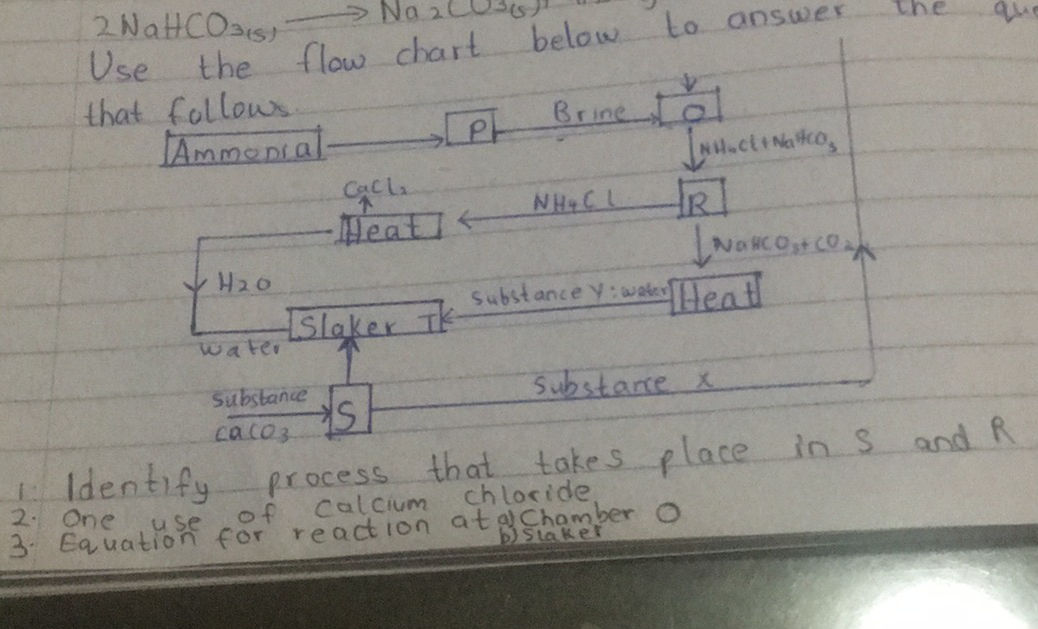 2NaHCO3(s) → Na2CO3(s)
Use the flow chart below to answer the
that follows.
Ammonial → P Brine → O
NH4Cl+NaHCO3
CaCl2
Heat ← NH4Cl R
NaHCO3+CO2
H2O
Slaker T ← Substance Y: water Heat
water
Substance X
Substance
CaCO3 → S
1. Identify process that takes place in S and R
2. One use of calcium chloride
3. Equation for reaction at a) Chamber O
b) Slaker